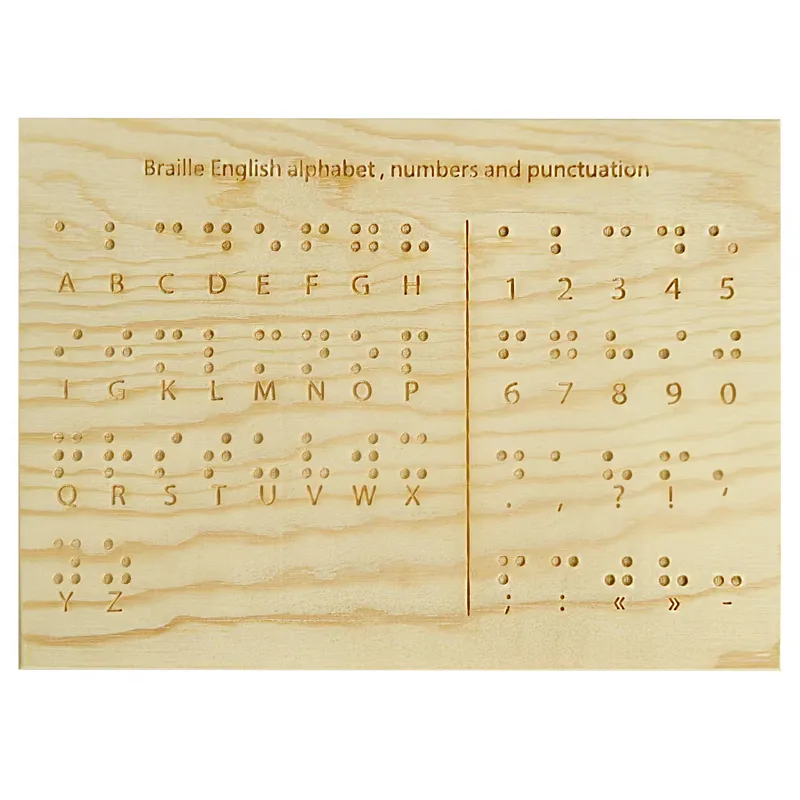 Braille English alphabet, numbers and punctuation
A B C D E F G H
I G K L M N O P
Q R S T U V W X
Y Z
1 2 3 4 5
6 7 8 9 0
. , ? ! ′
; : « » -